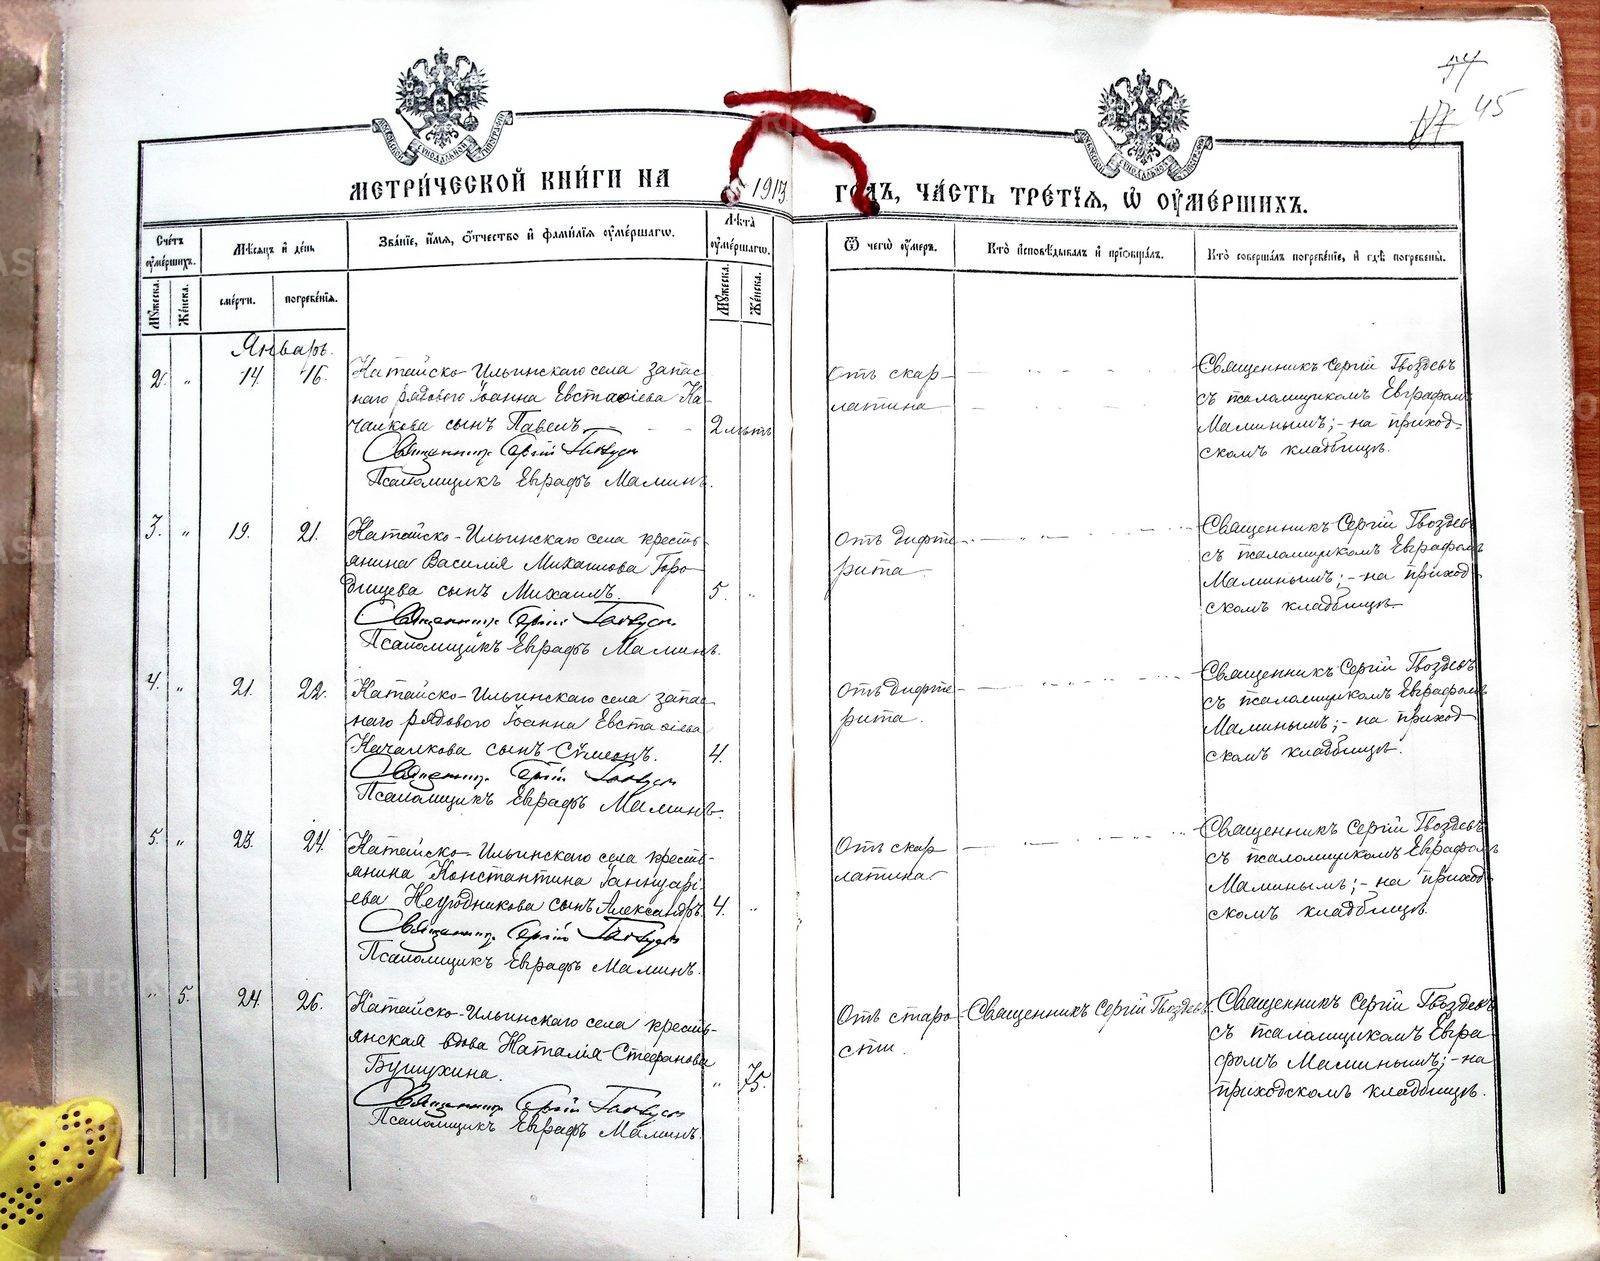 74
45
МОСКОВСКОЙ СѴНОДАЛЬНОЙ ТИПОГРАФІИ
МОСКОВСКОЙ СѴНОДАЛЬНОЙ ТИПОГРАФІИ
МЕТРИ́ЧЕСКОЙ КНИ́ГИ НА 1917
ГОДЪ, ЧА́СТЬ ТРЕ́ТІѦ, Ѽ ОУМЕ́РШИХЪ.
Сче́тъ оуме́ршихъ.
Мѣ́сяцъ и де́нь
Зва́нїе, и́мя, ѻ́тчество и фами́лїя оуме́ршагѡ.
Лѣ́та оуме́ршагѡ.
Ѿ чегѡ̀ оу́меръ.
Кто̀ исповѣ́дывалъ и прїобща́лъ.
Кто̀ соверша́лъ погребе́нїе, и гдѣ̀ погребены̀.
Му́жеска.
Же́нска.
сме́рти.
погребе́нїя.
Му́жеска.
Же́нска.
Январь.
2. „ 14. 16. Катайско-Ильинскаго села запас
наго рядового Іоанна Евстаѳіева Ка-
чалкова сынъ Павелъ 2 лѣтъ
Священникъ Сергій Гвоздевъ
Псаломщикъ Евграфъ Маминъ.
Отъ скар-
латина
Священникъ Сергій Гвоздевъ
съ псаломщикомъ Евграфомъ
Маминымъ; - на приход-
скомъ кладбищѣ.
3. „ 19. 21. Катайско-Ильинскаго села кресть-
янина Василія Михаилова Горо-
дищева сынъ Михаилъ. 5. „
Священникъ Сергій Гвоздевъ
Псаломщикъ Евграфъ Маминъ.
Отъ дифте-
рита
Священникъ Сергій Гвоздевъ
съ псаломщикомъ Евграфомъ
Маминымъ; - на приход-
скомъ кладбищѣ
4. „ 21. 22. Катайско-Ильинскаго села запас
наго рядового Іоанна Евстаѳіева
Качалкова сынъ Сѷмеонъ. 4.
Священникъ Сергій Гвоздевъ
Псаломщикъ Евграфъ Маминъ.
Отъ дифте-
рита.
Священникъ Сергій Гвоздевъ
съ псаломщикомъ Евграфомъ
Маминымъ; - на приход-
скомъ кладбищѣ.
5. „ 23. 24. Катайско-Ильинскаго села кресть-
янина Константина Іаннуарі-
ева Негодникова сынъ Александръ. 4. „
Священникъ Сергій Гвоздевъ
Псаломщикъ Евграфъ Маминъ.
Отъ скар
латина
Священникъ Сергій Гвоздевъ
съ псаломщикомъ Евграфомъ
Маминымъ; - на приход-
скомъ кладбищѣ.
„ 5. 24. 26. Катайско-Ильинскаго села кресть-
янская вдова Наталія Стефанова
Бушухина. „ 75.
Священникъ Сергій Гвоздевъ
Псаломщикъ Евграфъ Маминъ.
Отъ старо-
сти.
Священникъ Сергій Гвоздевъ
Священникъ Сергій Гвоздевъ
съ псаломщикомъ Евгра
фомъ Маминымъ; - на
приходскомъ кладбищѣ.